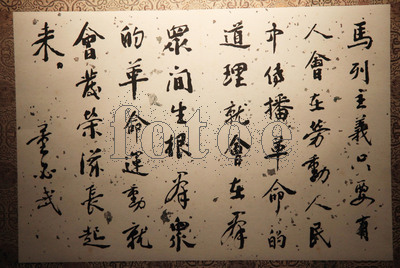 馬列主義只要有
人會在勞動人民
中傳播革命的
道理就會在群
眾间生根群眾
的革命運動就
會發榮滋長起
来。
董必武
fotoe